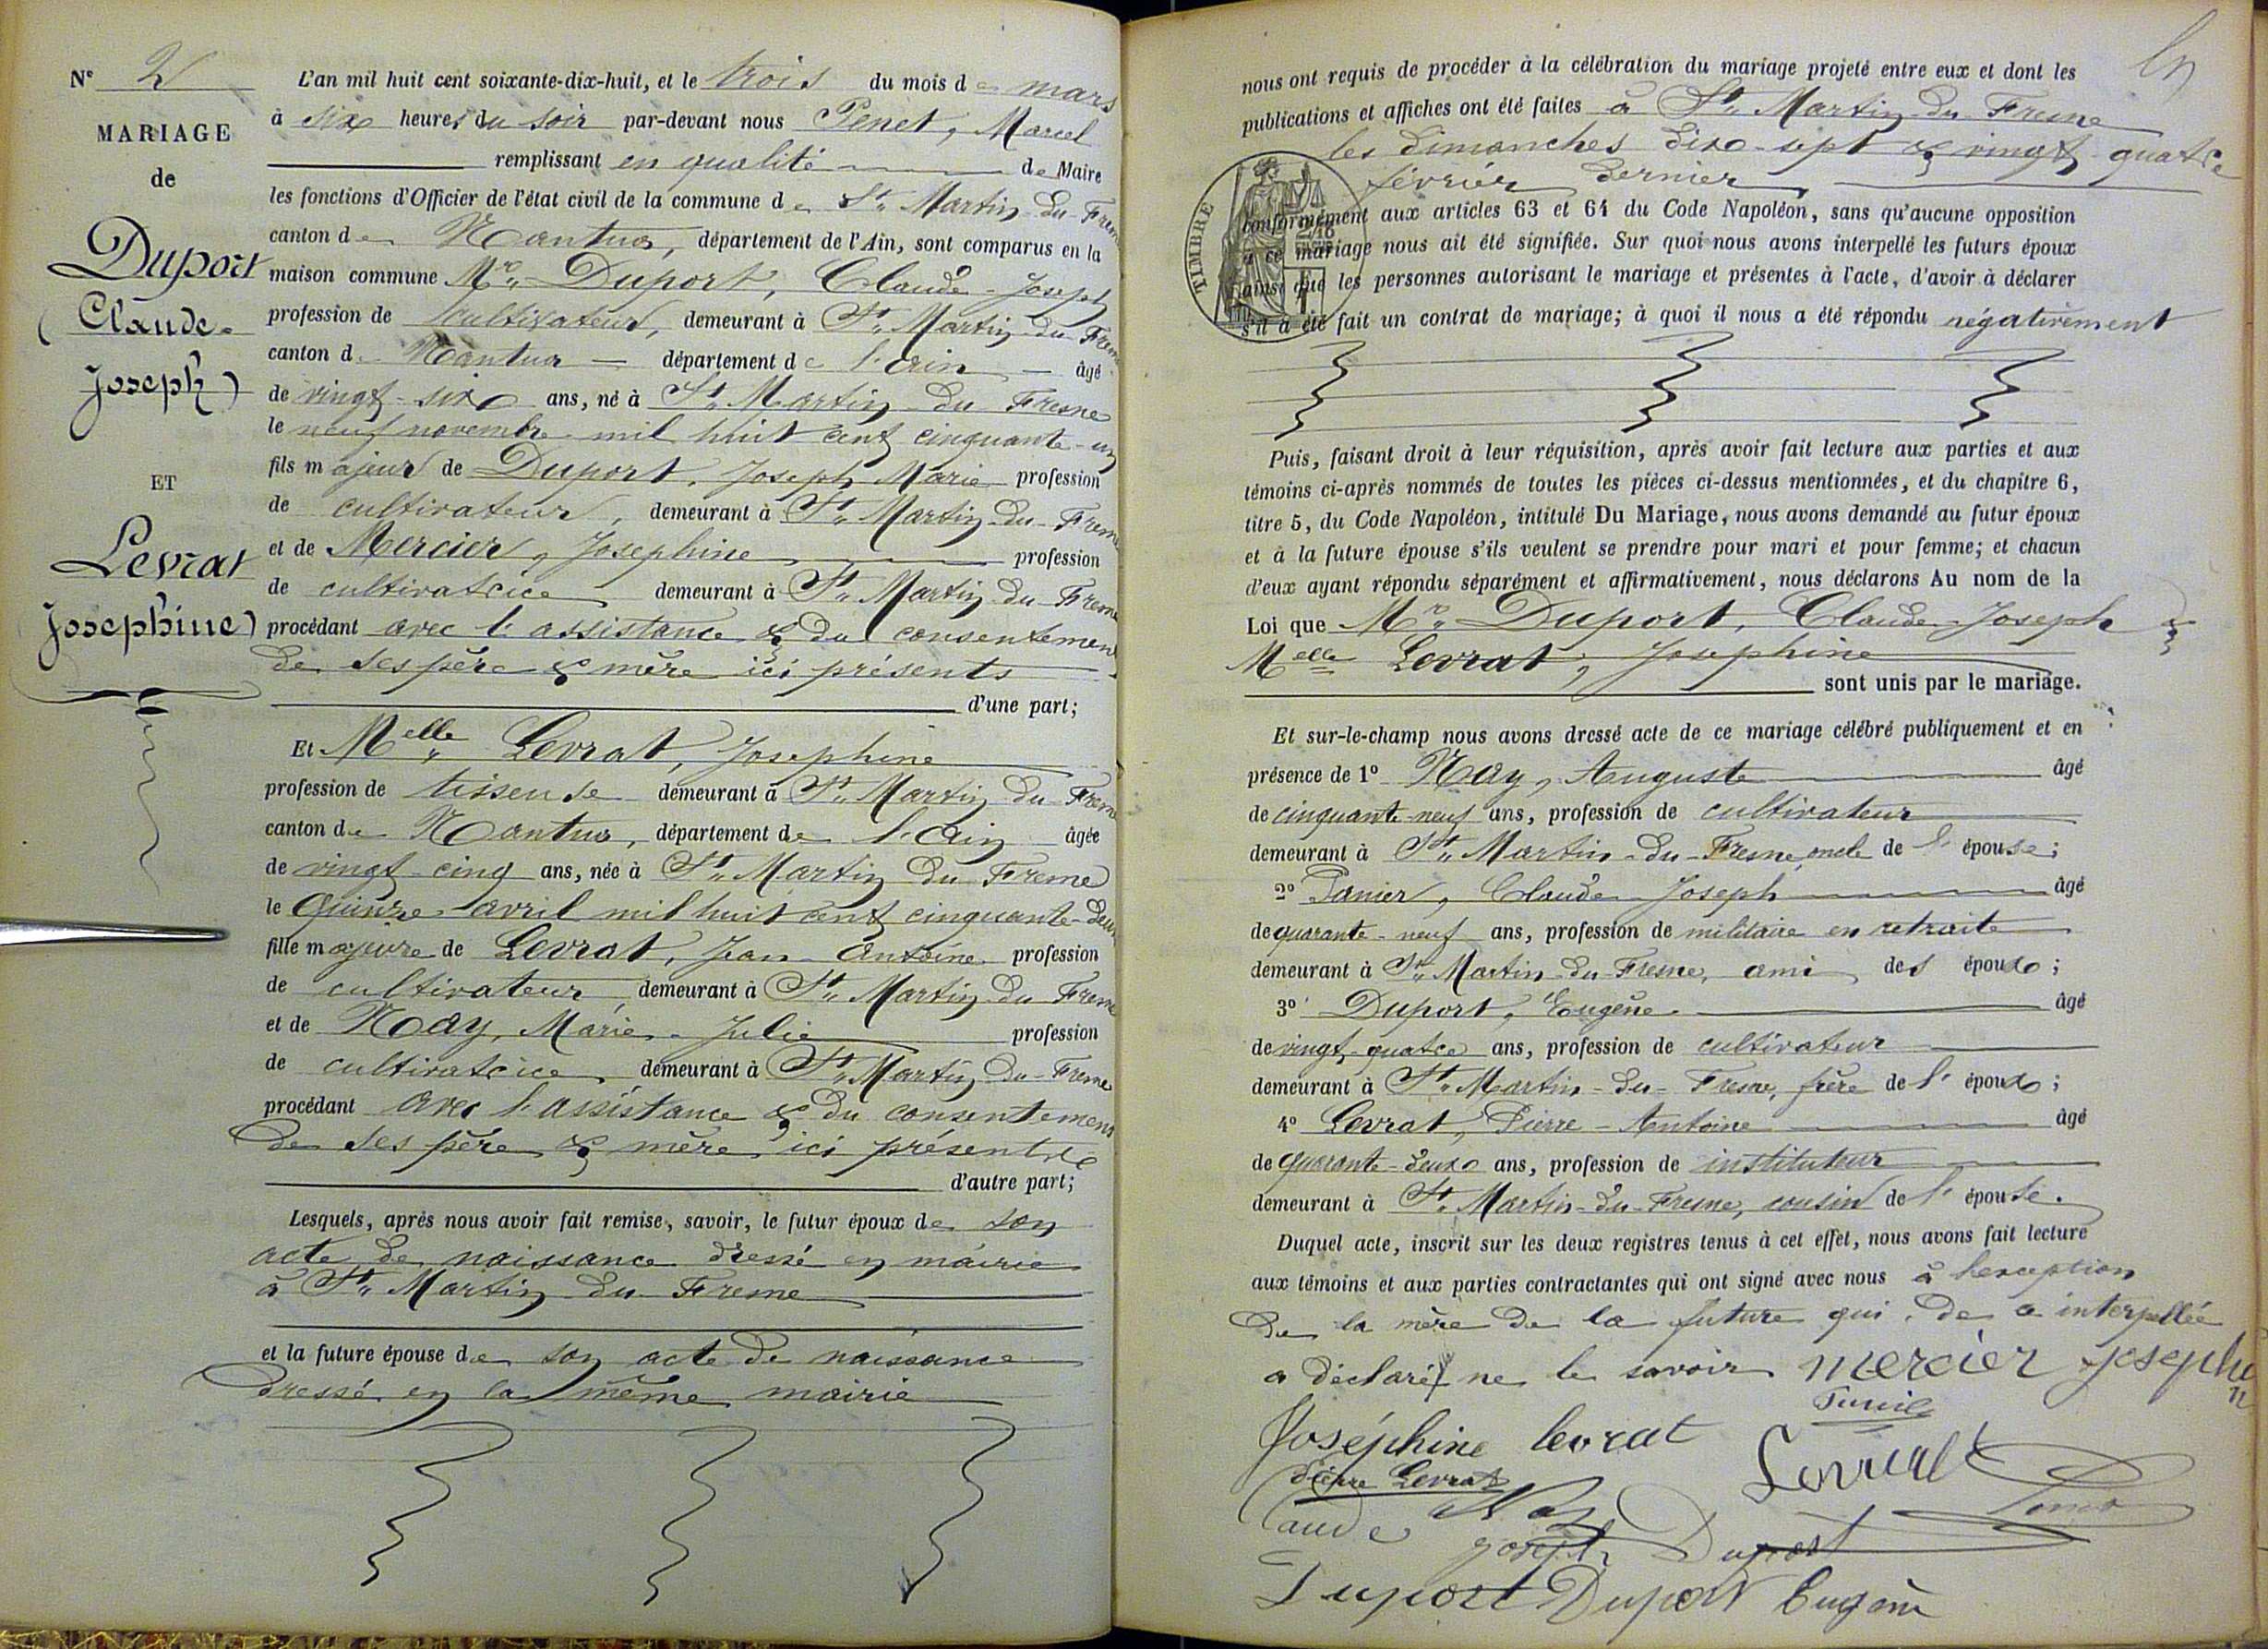 N° 2
MARIAGE
de
Duport
(Claude-
Joseph)
ET
Levrat
Josephine)
L'an mil huit cent soixante-dix-huit, et le trois du mois de mars
à six heures du soir par-devant nous Penet, Marcel
remplissant en qualité de Maire
les fonctions d'Officier de l'état civil de la commune de St. Martin-du-Fresne
canton de Nantua, département de l'Ain, sont comparus en la
maison commune Mr. Duport, Claude-Joseph
profession de cultivateur, demeurant à St. Martin-du-Fresne
canton de Nantua département de l'Ain âgé
de vingt-six ans, né à St. Martin-du-Fresne
le neuf novembre mil huit cent cinquante-un
fils majeur de Duport, Joseph Marie profession
de cultivateur, demeurant à St. Martin-du-Fresne
et de Mercier, Josephine profession
de cultivatrice demeurant à St. Martin-du-Fresne
procédant avec l'assistance & du consentement
de ses père & mère ici présents
d'une part;
Et Melle Levrat, Josephine
profession de tisseuse demeurant à St. Martin-du-Fresne
canton de Nantua, département de l'Ain âgée
de vingt-cinq ans, née à St. Martin-du-Fresne
le Quinze avril mil huit cent cinquante-deux
fille majeure de Levrat, Jean-Antoine profession
de cultivateur demeurant à St. Martin-du-Fresne
et de Nay, Marie-Julie profession
de cultivatrice, demeurant à St. Martin-du-Fresne
procédant avec l'assistance & du consentement
de ses père & mère, ici présents
d'autre part;
Lesquels, après nous avoir fait remise, savoir, le futur époux de son
acte de naissance dressé en mairie
à St. Martin-du-Fresne
et la future épouse de son acte de naissance
dressé en la même mairie
nous ont requis de procéder à la célébration du mariage projeté entre eux et dont les
publications et affiches ont été faites à St. Martin-du-Fresne
les dimanches dix-sept & vingt-quatre
février dernier,
TIMBRE
conformément aux articles 63 et 64 du Code Napoléon, sans qu'aucune opposition
à ce mariage nous ait été signifiée. Sur quoi nous avons interpellé les futurs époux
ainsi que les personnes autorisant le mariage et présentes à l'acte, d'avoir à déclarer
s'il a été fait un contrat de mariage; à quoi il nous a été répondu négativement
Puis, faisant droit à leur réquisition, après avoir fait lecture aux parties et aux
témoins ci-après nommés de toutes les pièces ci-dessus mentionnées, et du chapitre 6,
titre 5, du Code Napoléon, intitulé Du Mariage, nous avons demandé au futur époux
et à la future épouse s'ils veulent se prendre pour mari et pour femme; et chacun
d'eux ayant répondu séparément et affirmativement, nous déclarons Au nom de la
Loi que Mr. Duport, Claude-Joseph &
Melle Levrat, Josephine
sont unis par le mariage.
Et sur-le-champ nous avons dressé acte de ce mariage célébré publiquement et en
présence de 1° Nay, Auguste âgé
de cinquante-neuf ans, profession de cultivateur
demeurant à St. Martin-du-Fresne, oncle de l'épouse;
2° Panier, Claude Joseph âgé
de quarante-neuf ans, profession de militaire en retraite
demeurant à St. Martin-du-Fresne, ami des époux;
3° Duport, Eugène âgé
de vingt-quatre ans, profession de cultivateur
demeurant à St. Martin-du-Fresne, frère de l'époux;
4° Levrat, Pierre-Antoine âgé
de Quarante-deux ans, profession de instituteur
demeurant à St. Martin-du-Fresne, cousin de l'épouse.
Duquel acte, inscrit sur les deux registres tenus à cet effet, nous avons fait lecture
aux témoins et aux parties contractantes qui ont signé avec nous à l'exception
de la mère de la future qui, de ce interpellée
a déclaré ne le savoir mercier josephin
Joséphine levrat
Levrat
Pierre Levrat
Nay
Claude joseph Duport
Duport Duport Eugène